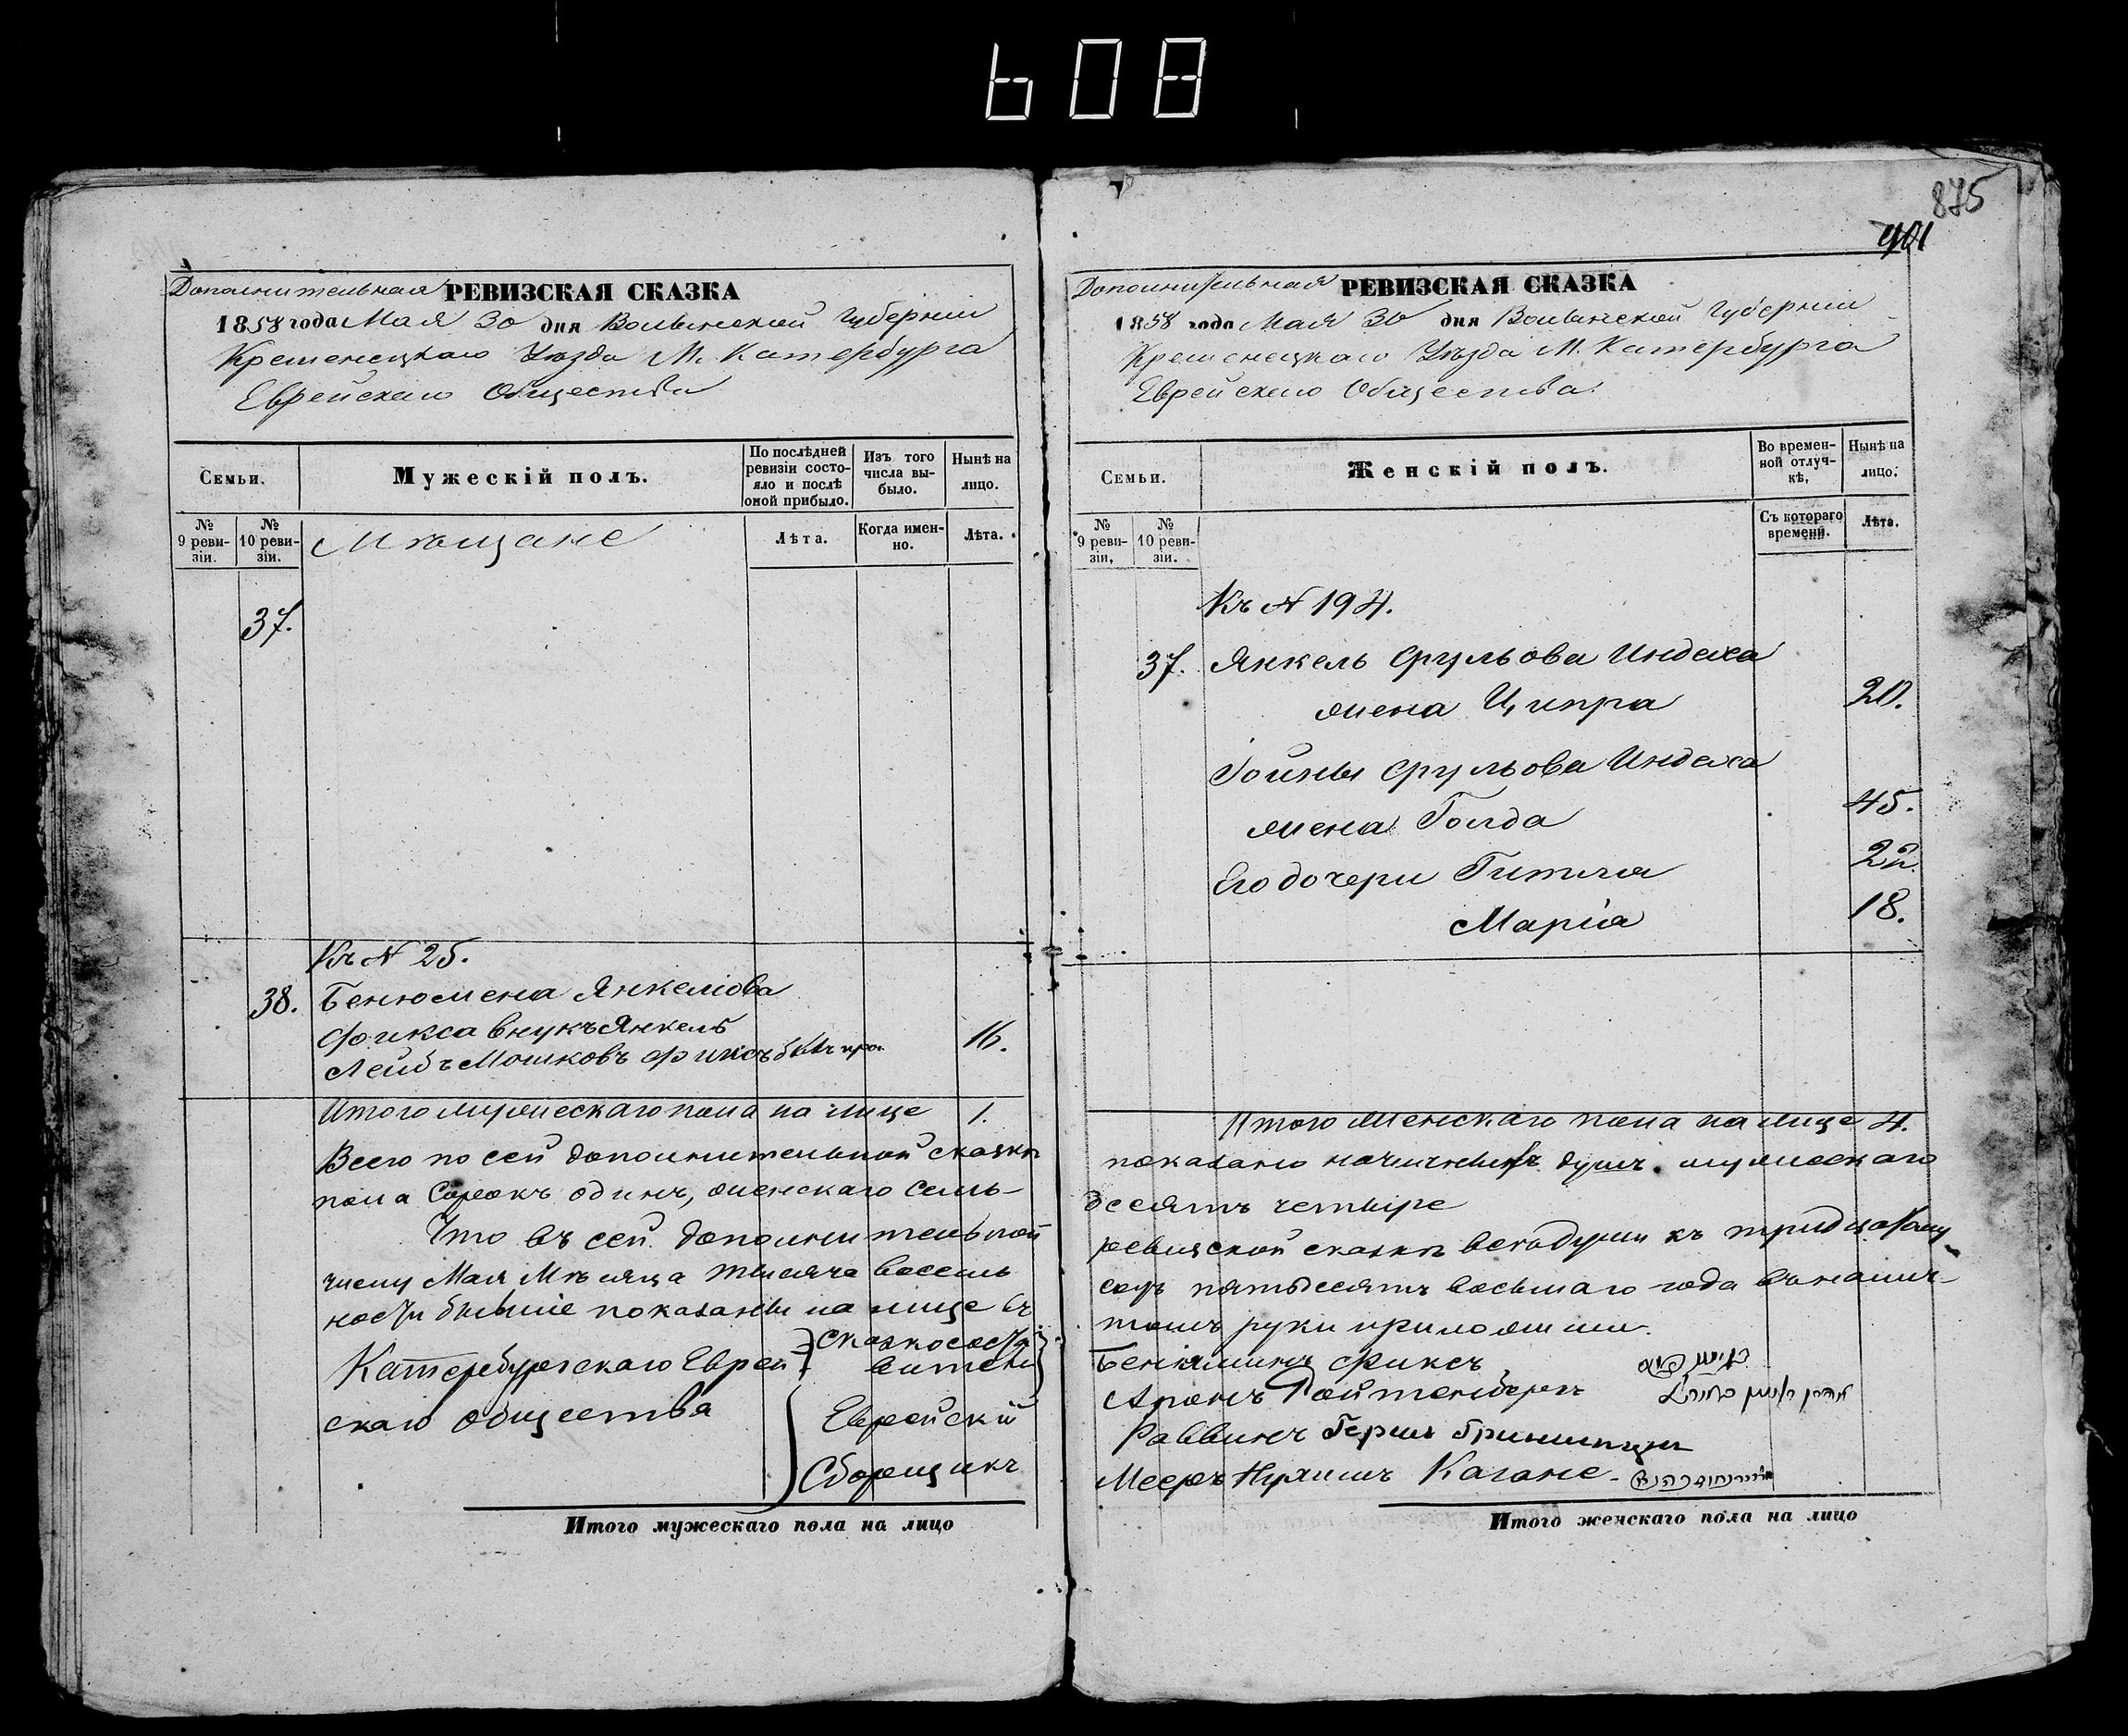 608
Дополнительная РЕВИЗСКАЯ СКАЗКА
1858 года Мая 30 дня Волынской Губерніи
Кременецкаго Уѣзда М. Катербурга
Еврейскаго Общества
Семьи.
Мужескій полъ.
По послѣдней ревизіи состояло и послѣ оной прибыло.
Изъ того числа выбыло.
Нынѣ на лицо.
№ 9 ревизіи.
№ 10 ревизіи.
Мѣщане
Лѣта.
Когда именно.
Лѣта.
37.
Къ N 25.
38. Бенюмена Янкеліова
Фикса внукъ Янкель
Лейбъ Мошковъ Фиксъ 16.
Итого мужескаго пола на лице 1.
Всего по сей дополнительной сказкѣ
пола Сорокъ одинъ, женскаго семь-
Что въ сей дополнительной
числу Мая Мѣсяца тысяча восемь
ности бывшіе показаны на лице въ
Катербургскаго Еврей
скаго общества
Сказкососта
вители
Еврейскій
Сборщикъ
Итого мужескаго пола на лицо
875
901
Дополнительная РЕВИЗСКАЯ СКАЗКА
1858 года Мая 30 дня Волынской Губерніи
Кременецкаго Уѣзда М. Катербурга
Еврейскаго Общества.
Семьи.
Женскій полъ.
Во временной отлучкѣ.
Нынѣ на лицо.
№ 9 ревизіи,
№ 10 ревизіи.
Съ котораго времени.
Лѣта.
Къ N 194.
37. Янкель Срульова Индеха
жена Ципра 20.
Гойны Срульова Индеха
жена Голда 45.
Его дочери Гитля 22.
Марія 18.
Итого женскаго пола на лице 4.
показано наличныхъ душъ мужескаго
десятъ четыре
ревизской сказкѣ всѣ души къ тридцатому
сотъ пятьдесятъ восьмаго года въ налич-
томъ руки приложили.
Беніяминъ Фиксъ
Аронъ Ройтенбергъ
Раввинъ Гершъ
Мееръ Нухимъ Кагане
Итого женскаго пола на лицо